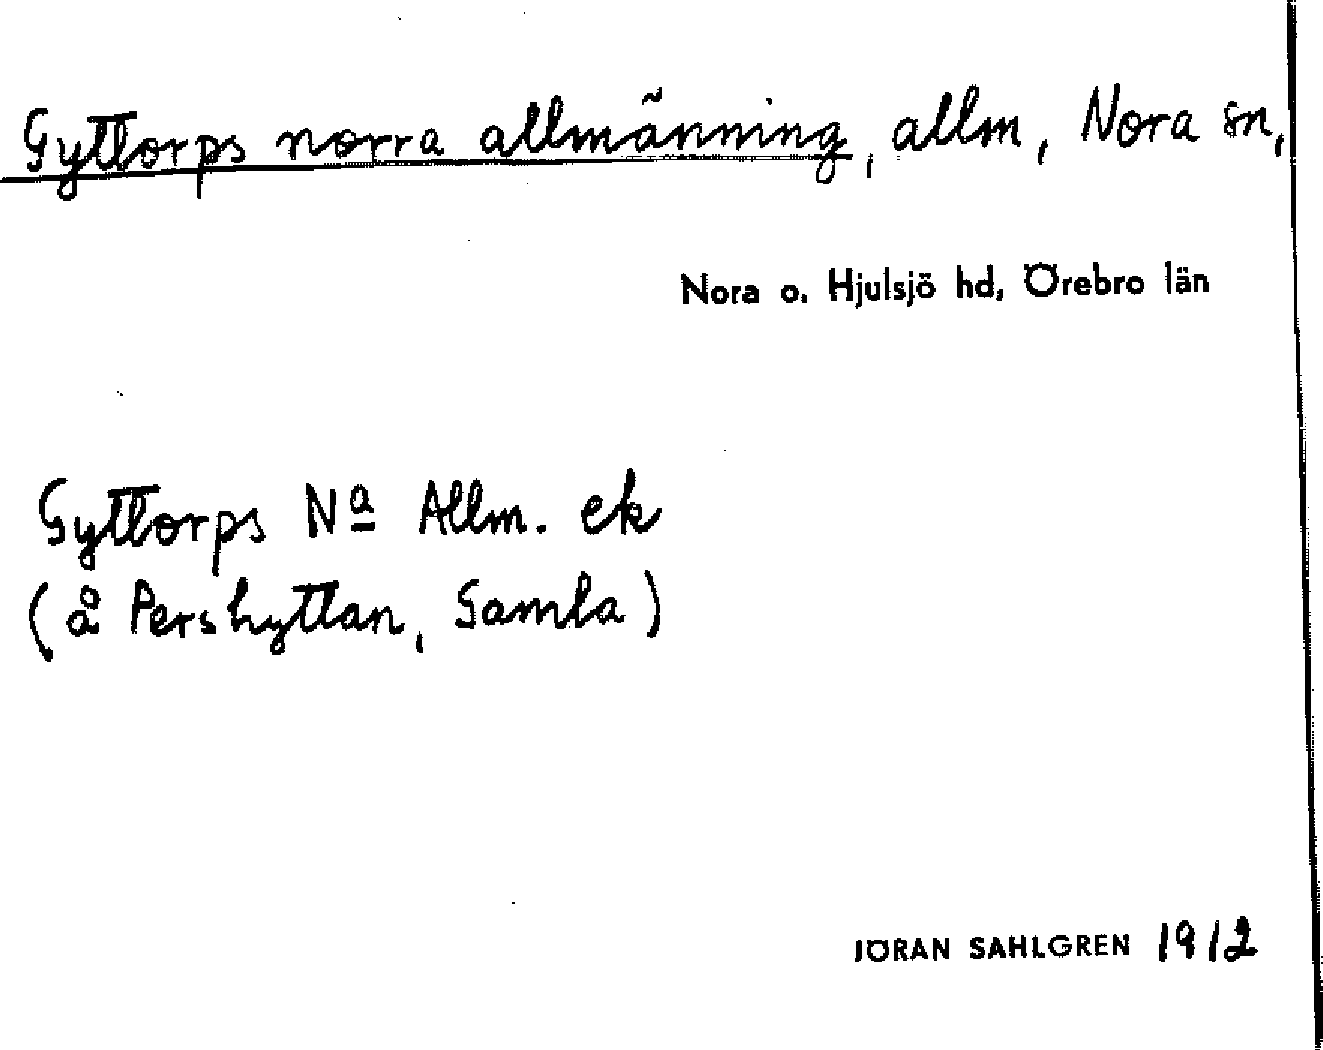 Gyttorps norra allmänning, allm, Nora sn,
Nora o. Hjulsjö hd, Örebro län
Gyttorps Nª Allm. ek
(å Pershyttan, Samla)
JÖRAN SAHLGREN 1912